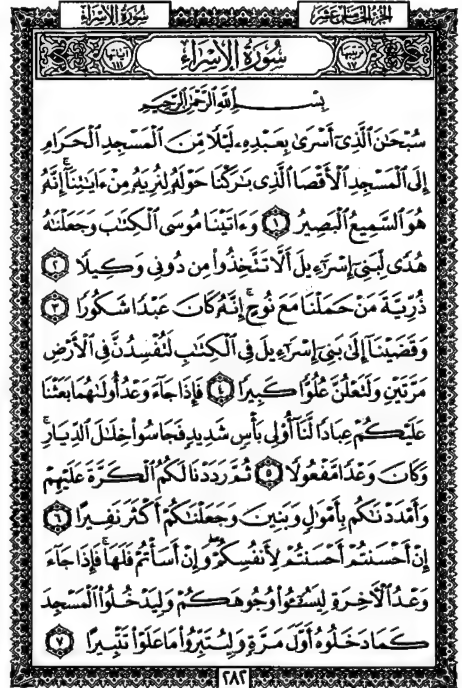 سُورَةُ الإِسْرَاءِ
الجُزءُ الخَامِسُ عَشَرَ
آياتها ١١١
سُورَةُ الإِسْرَاءِ
ترتيبها ١٧
بِسْمِ ٱللَّهِ ٱلرَّحْمَٰنِ ٱلرَّحِيمِ
سُبْحَٰنَ ٱلَّذِىٓ أَسْرَىٰ بِعَبْدِهِۦ لَيْلًا مِّنَ ٱلْمَسْجِدِ ٱلْحَرَامِ
إِلَى ٱلْمَسْجِدِ ٱلْأَقْصَا ٱلَّذِى بَٰرَكْنَا حَوْلَهُۥ لِنُرِيَهُۥ مِنْ ءَايَٰتِنَآ ۚ إِنَّهُۥ
هُوَ ٱلسَّمِيعُ ٱلْبَصِيرُ ١ وَءَاتَيْنَا مُوسَى ٱلْكِتَٰبَ وَجَعَلْنَٰهُ
هُدًى لِّبَنِىٓ إِسْرَٰٓءِيلَ أَلَّا تَتَّخِذُوا۟ مِن دُونِى وَكِيلًا ٢
ذُرِّيَّةَ مَنْ حَمَلْنَا مَعَ نُوحٍ ۚ إِنَّهُۥ كَانَ عَبْدًا شَكُورًا ٣
وَقَضَيْنَآ إِلَىٰ بَنِىٓ إِسْرَٰٓءِيلَ فِى ٱلْكِتَٰبِ لَتُفْسِدُنَّ فِى ٱلْأَرْضِ
مَرَّتَيْنِ وَلَتَعْلُنَّ عُلُوًّا كَبِيرًا ٤ فَإِذَا جَآءَ وَعْدُ أُولَىٰهُمَا بَعَثْنَا
عَلَيْكُمْ عِبَادًا لَّنَآ أُو۟لِى بَأْسٍ شَدِيدٍ فَجَاسُوا۟ خِلَٰلَ ٱلدِّيَارِ ۚ
وَكَانَ وَعْدًا مَّفْعُولًا ٥ ثُمَّ رَدَدْنَا لَكُمُ ٱلْكَرَّةَ عَلَيْهِمْ
وَأَمْدَدْنَٰكُم بِأَمْوَٰلٍ وَبَنِينَ وَجَعَلْنَٰكُمْ أَكْثَرَ نَفِيرًا ٦
إِنْ أَحْسَنتُمْ أَحْسَنتُمْ لِأَنفُسِكُمْ ۖ وَإِنْ أَسَأْتُمْ فَلَهَا ۚ فَإِذَا جَآءَ
وَعْدُ ٱلْءَاخِرَةِ لِيَسُۥٓـُٔوا۟ وُجُوهَكُمْ وَلِيَدْخُلُوا۟ ٱلْمَسْجِدَ
كَمَا دَخَلُوهُ أَوَّلَ مَرَّةٍ وَلِيُتَبِّرُوا۟ مَا عَلَوْا۟ تَتْبِيرًا ٧
٢٨٢